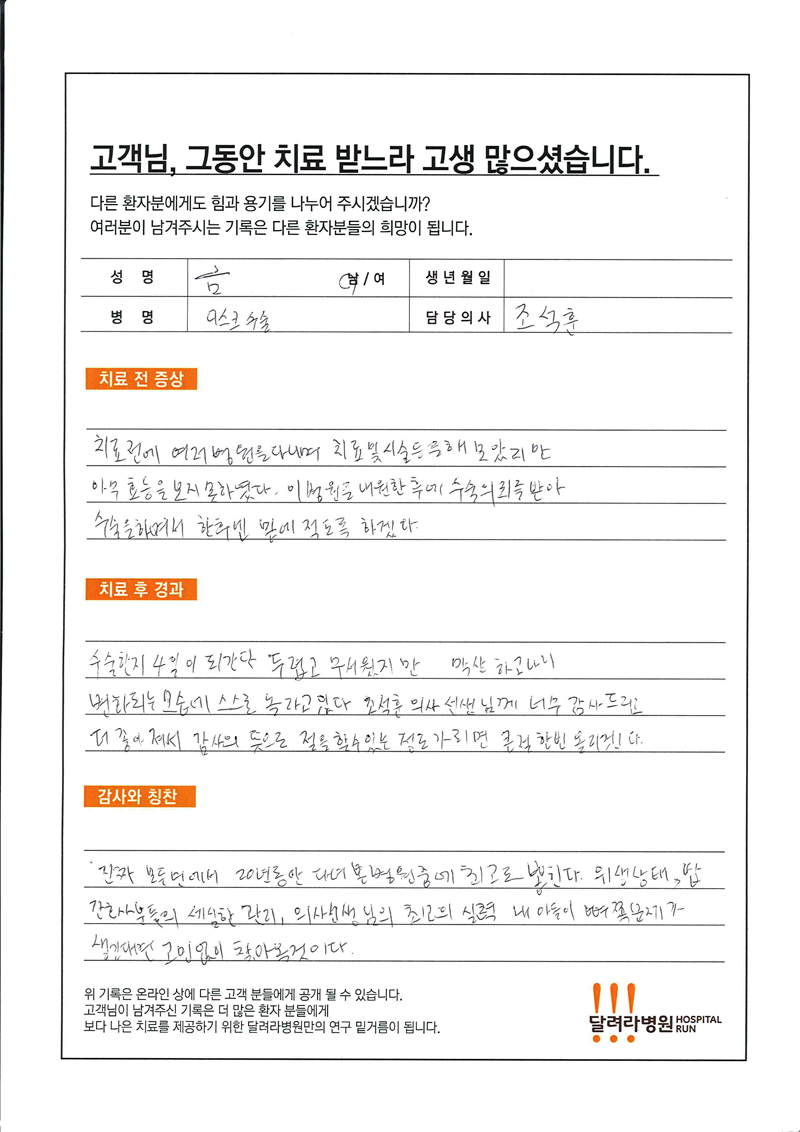 고객님, 그동안 치료 받느라 고생 많으셨습니다.
다른 환자분에게도 힘과 용기를 나누어 주시겠습니까?
여러분이 남겨주시는 기록은 다른 환자분들의 희망이 됩니다.
성 명 남/여 생년월일
병 명 디스크 수술 담당의사 조석훈
치료 전 증상
치료전에 여러병원을다니며 치료및시술등을해 보았지만
아무 효능을 보지 못하였다. 이병원을 내원한 후에 수술의뢰를 받아
수술을하며서 한후엔 밑에 적도록 하겠다.
치료 후 경과
수술한지 4일이 되간다 두렵고 무서웠지만 막상 하고나니
변화되는 모습에 스스로 놀라고있다 조석훈 의사 선생님께 너무 감사드리고
더 좋아져서 감사의 뜻으로 절을할수있는 정도가되면 큰절 한번 올리겠다.
감사와 칭찬
진짜 모든면에서 20년동안 다녀본병원중에 최고로 뽑힌다. 위생상태, 밥
간호사분들의 세심한 관리, 의사선생님의 최고의 실력 내 아들이 뼈쪽문제가
생긴대면 고민없이 찾아올것이다.
위 기록은 온라인 상에 다른 고객 분들에게 공개 될 수 있습니다.
고객님이 남겨주신 기록은 더 많은 환자 분들에게
보다 나은 치료를 제공하기 위한 달려라병원만의 연구 밑거름이 됩니다.
달려라병원 HOSPITAL RUN